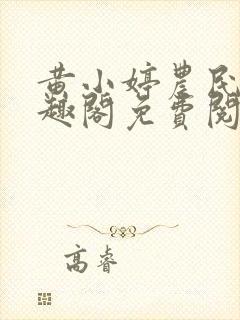 黄小婷農民
趣閣免費閱
高睿